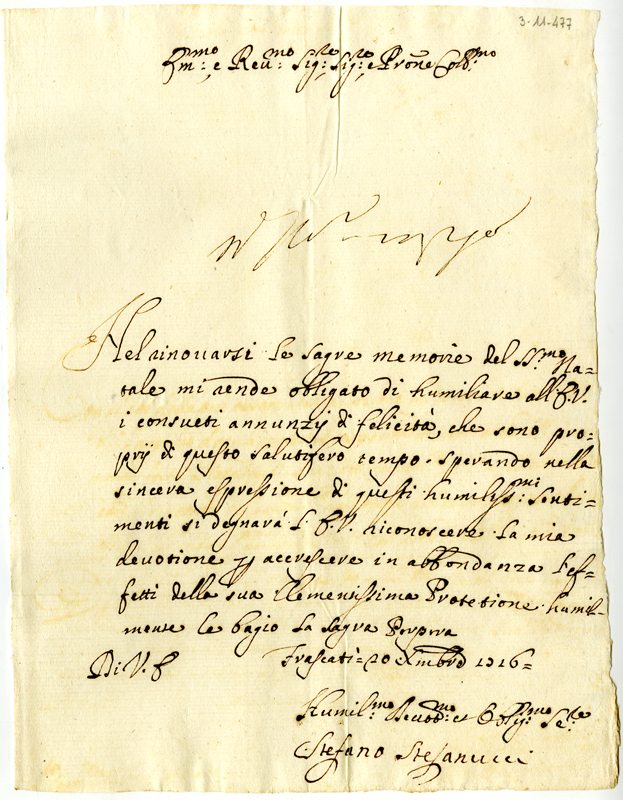 3-11-477
Em:mo e Reu:mo Sig:re Sig:re e Prõne Col:mo
Nel rinouarsi le sagre memorie del SS.mo Na=
tale mi rende obbligato di humiliare all'E.V.
i consueti annunzÿ di felicità, che sono pro=
prÿ di questo salutifero tempo. sperando nella
sincera espressione di questi humiliss:mi Senti=
menti si degnarà l'E.V. riconoscere la mia
devotione p accrescere in abbondanza l'ef=
fetti della sua Clementissima Protetione humil=
mente le bagio la sagra Porpora
Di V. E
Frascati= 20 Xmbre 1716=
Humil:mo Deuot:mo et Oblig:mo Se:re
Stefano Stefanucci